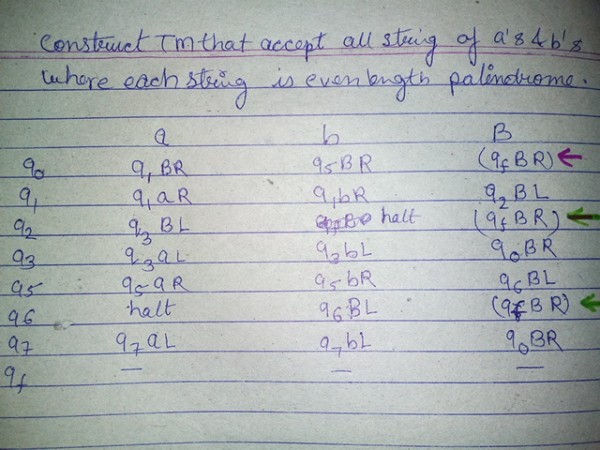 Construct TM that accept all string of a's & b's
where each string is even length palindrome.
a b B
q0 q1BR q5BR (qfBR) ←
q1 q1aR q1bR q2BL
q2 q3BL halt (qfBR) ←
q3 q3aL q3bL q0BR
q5 q5aR q5bR q6BL
q6 halt q6BL (qfBR) ←
q7 q7aL q7bL q0BR
qf — — —